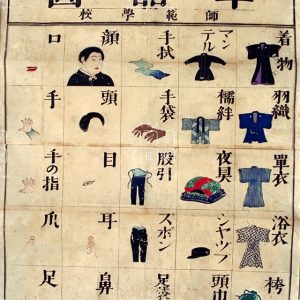 單語圖
師範學校
着物
羽織
單衣
浴衣
袴
マンテル
襦絆
夜具
シヤツプ
頭巾
手拭
手袋
股引
ズボン
足袋
顔
頭
目
耳
鼻
口
手
手の指
爪
足